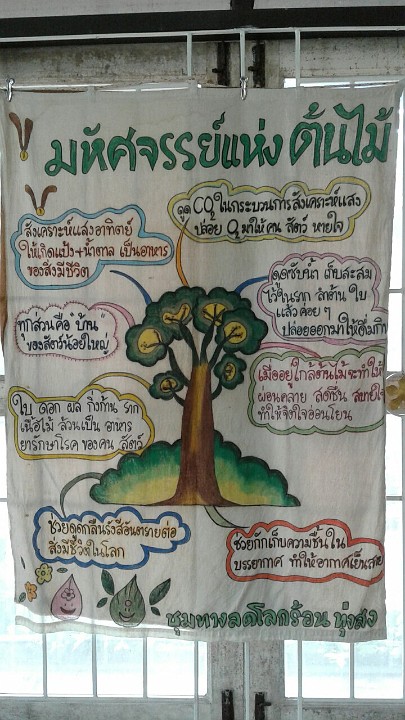 มหัศจรรย์แห่ง ต้นไม้
ดูด CO2 ในกระบวนการสังเคราะห์แสง
ปล่อย O2 มาให้ คน สัตว์ หายใจ
สังเคราะห์แสงอาทิตย์
ให้เกิดแป้ง+น้ำตาล เป็นอาหาร
ของสิ่งมีชีวิต
ดูดซับน้ำ เก็บสะสม
ไว้ในราก ลำต้น ใบ
แล้วค่อย ๆ
ปล่อยออกมาให้อื่มกิน
ทุกส่วนคือ บ้าน
ของสัตว์น้อยใหญ่
เมื่ออยู่ใกล้ต้นไม้จะทำให้
ผ่อนคลาย สดชื่น สบายใจ
ทำให้จิตใจอ่อนโยน
ใบ ดอก ผล กิ่งก้าน ราก
เนื้อไม้ ล้วนเป็น อาหาร
ยารักษาโรค ของคน สัตว์
ช่วยดูดกลืนรังสีอันตรายต่อ
สิ่งมีชีวิตในโลก
ช่วยกักเก็บความชื้นใน
บรรยากาศ ทำให้อากาศเย็นสบาย
ชุมทางลดโลกร้อน ทุ่งสง